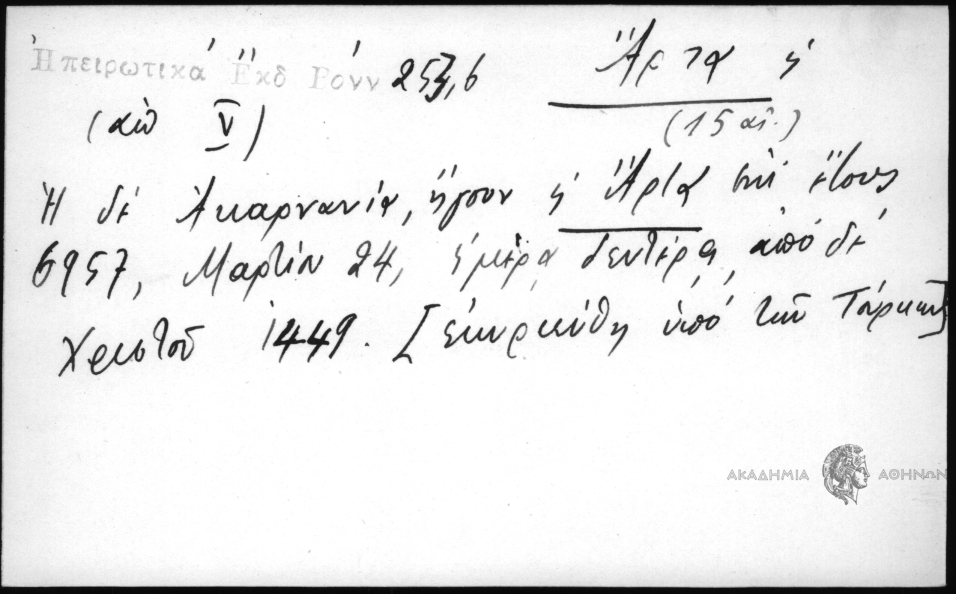 Ἠπειρωτικά Ἔκδ Βόνν 257,6 Ἄρτα ἡ
(αἰὼ V) (15 αἰ.)
Ἡ δὲ Ἀκαρνανία, ἤγουν ἡ Ἄρτα ἐπὶ ἔτους
6957, Μαρτίου 24, ἡμέρᾳ δευτέρᾳ, ἀπὸ δὲ
Χριστοῦ 1449. [ἐκυριεύθη ὑπό τῶν Τούρκων]
ΑΚΑΔΗΜΙΑ ΑΘΗΝΩΝ